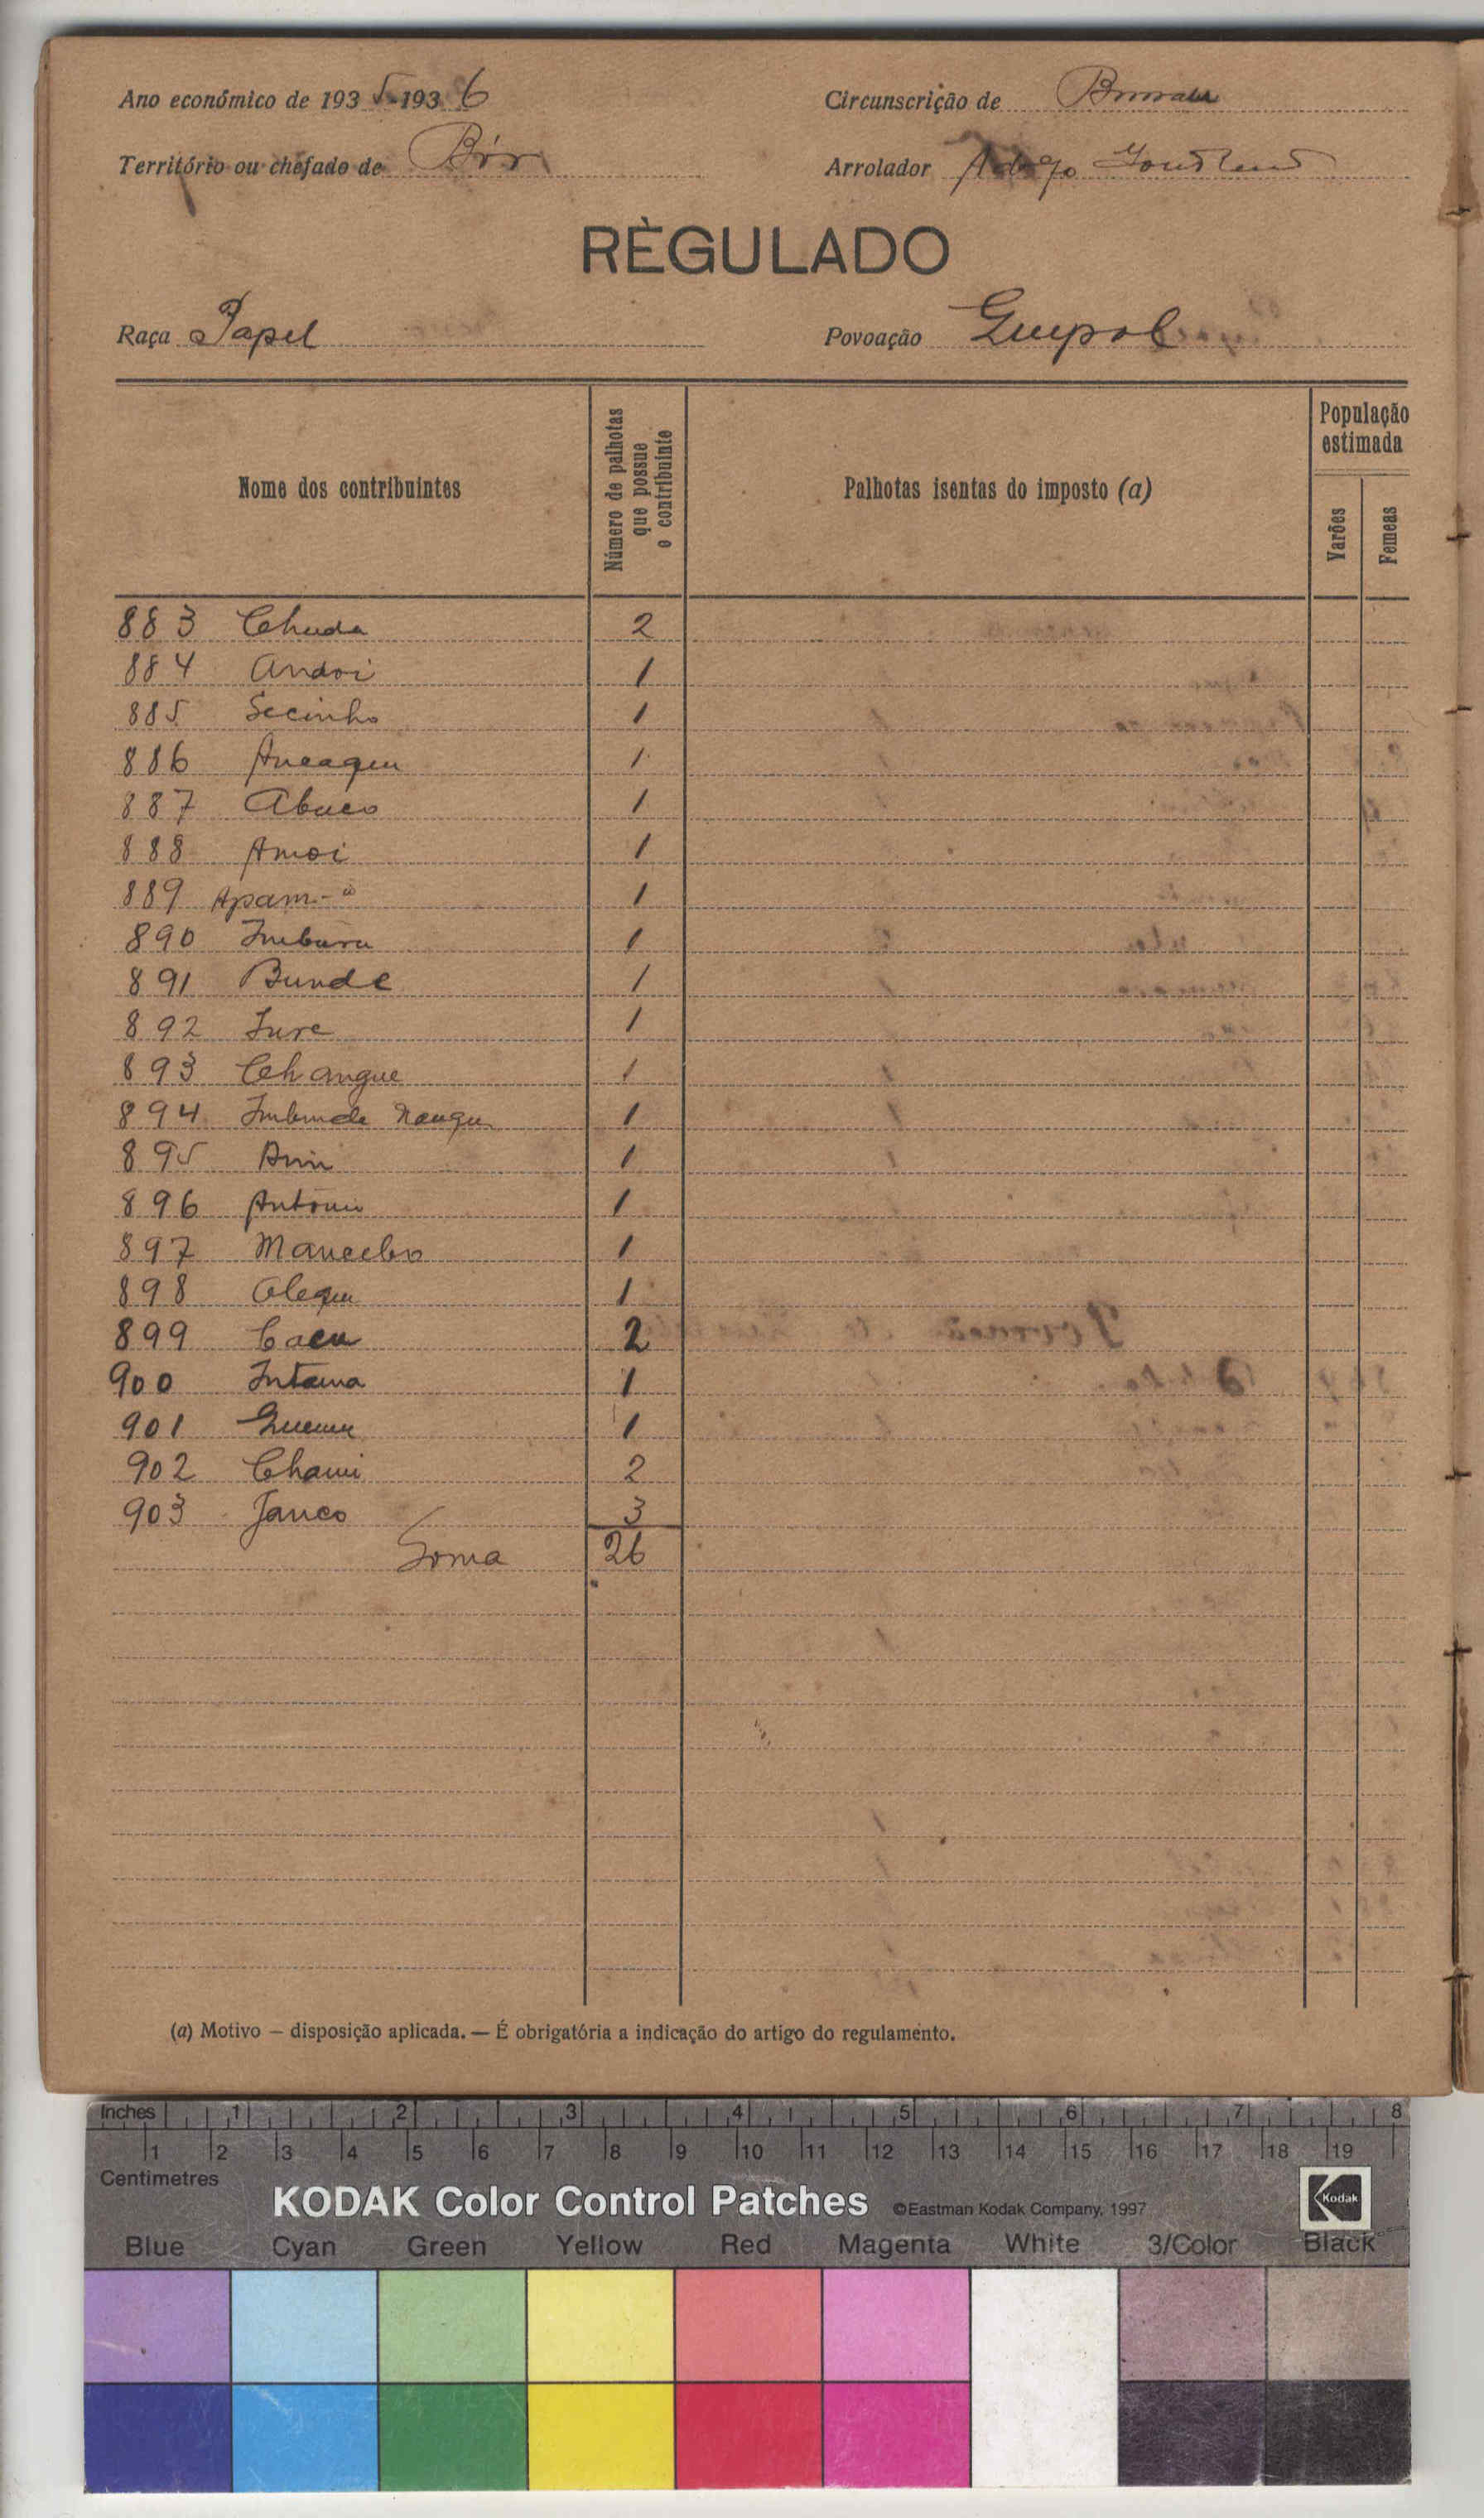 Ano económico de 1935-1936
Circunscrição de Bissau
Território ou chefado de Bór
Arrolador
RÈGULADO
Raça Papel
Povoação Guipol
Nome dos contribuintes
Número de palhotas que possue o contribuinte
Palhotas isentas do imposto (a)
População estimada
Varões
Femeas
883 Chuda 2
884 Andoi 1
885 Secinho 1
886 Ancaqui 1
887 Abuco 1
888 Amoi 1
889 Apam-ú 1
890 1
891 Bunde 1
892 1
893 Changue 1
894 1
895 1
896 António 1
897 Mancebo 1
898 1
899 Cacu 2
900 1
901 1
902 2
903 Janco 3
Soma 26
(a) Motivo — disposição aplicada. — É obrigatória a indicação do artigo do regulamento.
Inches 1 2 3 4 5 6 7 8
1 2 3 4 5 6 7 8 9 10 11 12 13 14 15 16 17 18 19
Centimetres
KODAK Color Control Patches ©Eastman Kodak Company, 1997 Kodak
Blue Cyan Green Yellow Red Magenta White 3/Color Black